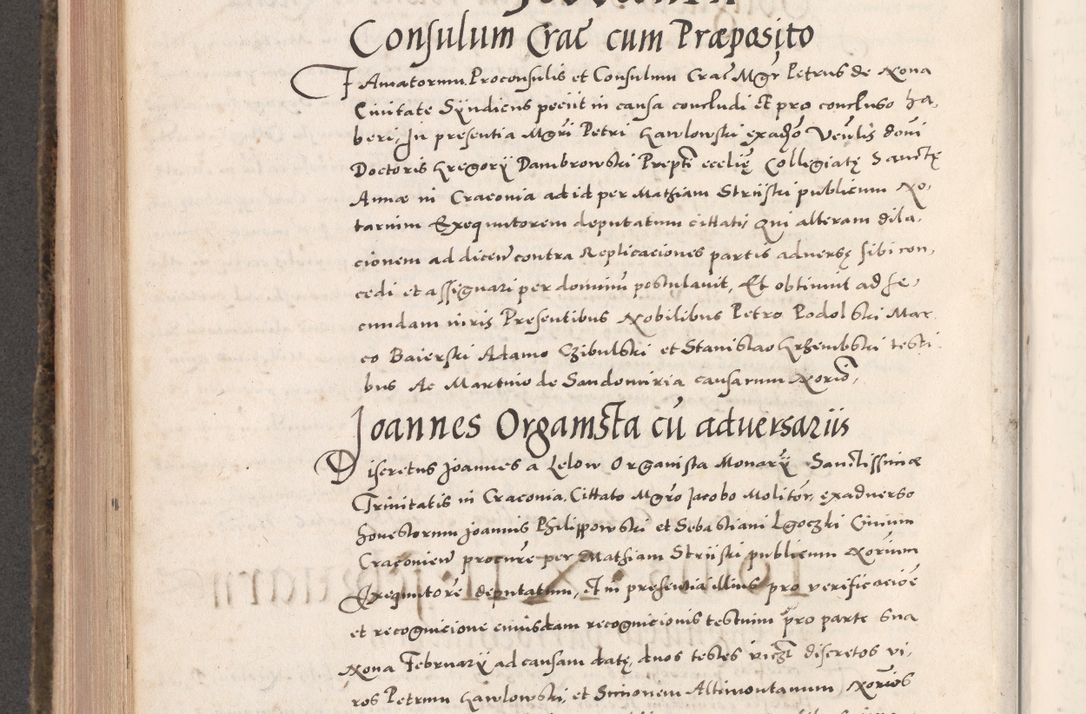 Consulum Crac cum Præposito
Famatorum Proconsulis et Consulum Crac Mgr Petrus de Nona
Civitate Syndicus petiit in causa concludi et pro concluso ha-
beri, In presentia Mgri Petri Gawlowski ex adso Venlis domi
Doctoris Gregorij Dambrowski Prepti ecclię Collegiatę Sanctę
Annæ in Craconia ad id per Mathiam Striiski publicum No-
tarium Exequutorem deputatum cittati Qui alteram dila-
cionem ad dicen contra Replicaciones partis adversę sibi con-
cedi et assignari per dominum postulavit, Et obtinuit ad se-
cundam iuris Presentibus Nobilibus Petro Podolski Mar
co Baierski Adamo Czibulski et Stanislao Grzembski testi
bus Ac Martino de Sandomiria causarum Norio
Joannes Organista cū adversariis
Discretus Joannes a Lelow Organista Monarÿ Sanctissimæ
Trinitatis in Craconia, Cittato Mgro Jacobo Molitor, ex adverso
honestorum Joannis Philippowski et Sebastiani Lgoczki Civium
Craconien procure per Mathiam Striiski publicum Norium
Exequutore deputatum, et in presentia illius pro verificacioe
et recognicione eiusdam recognicionis testium pro parte sua
Nona Februarÿ ad causam datę, duos testes viczt discretos vi-
ros Petrum Gawlowski, et Simonem Altimontanum, Norios